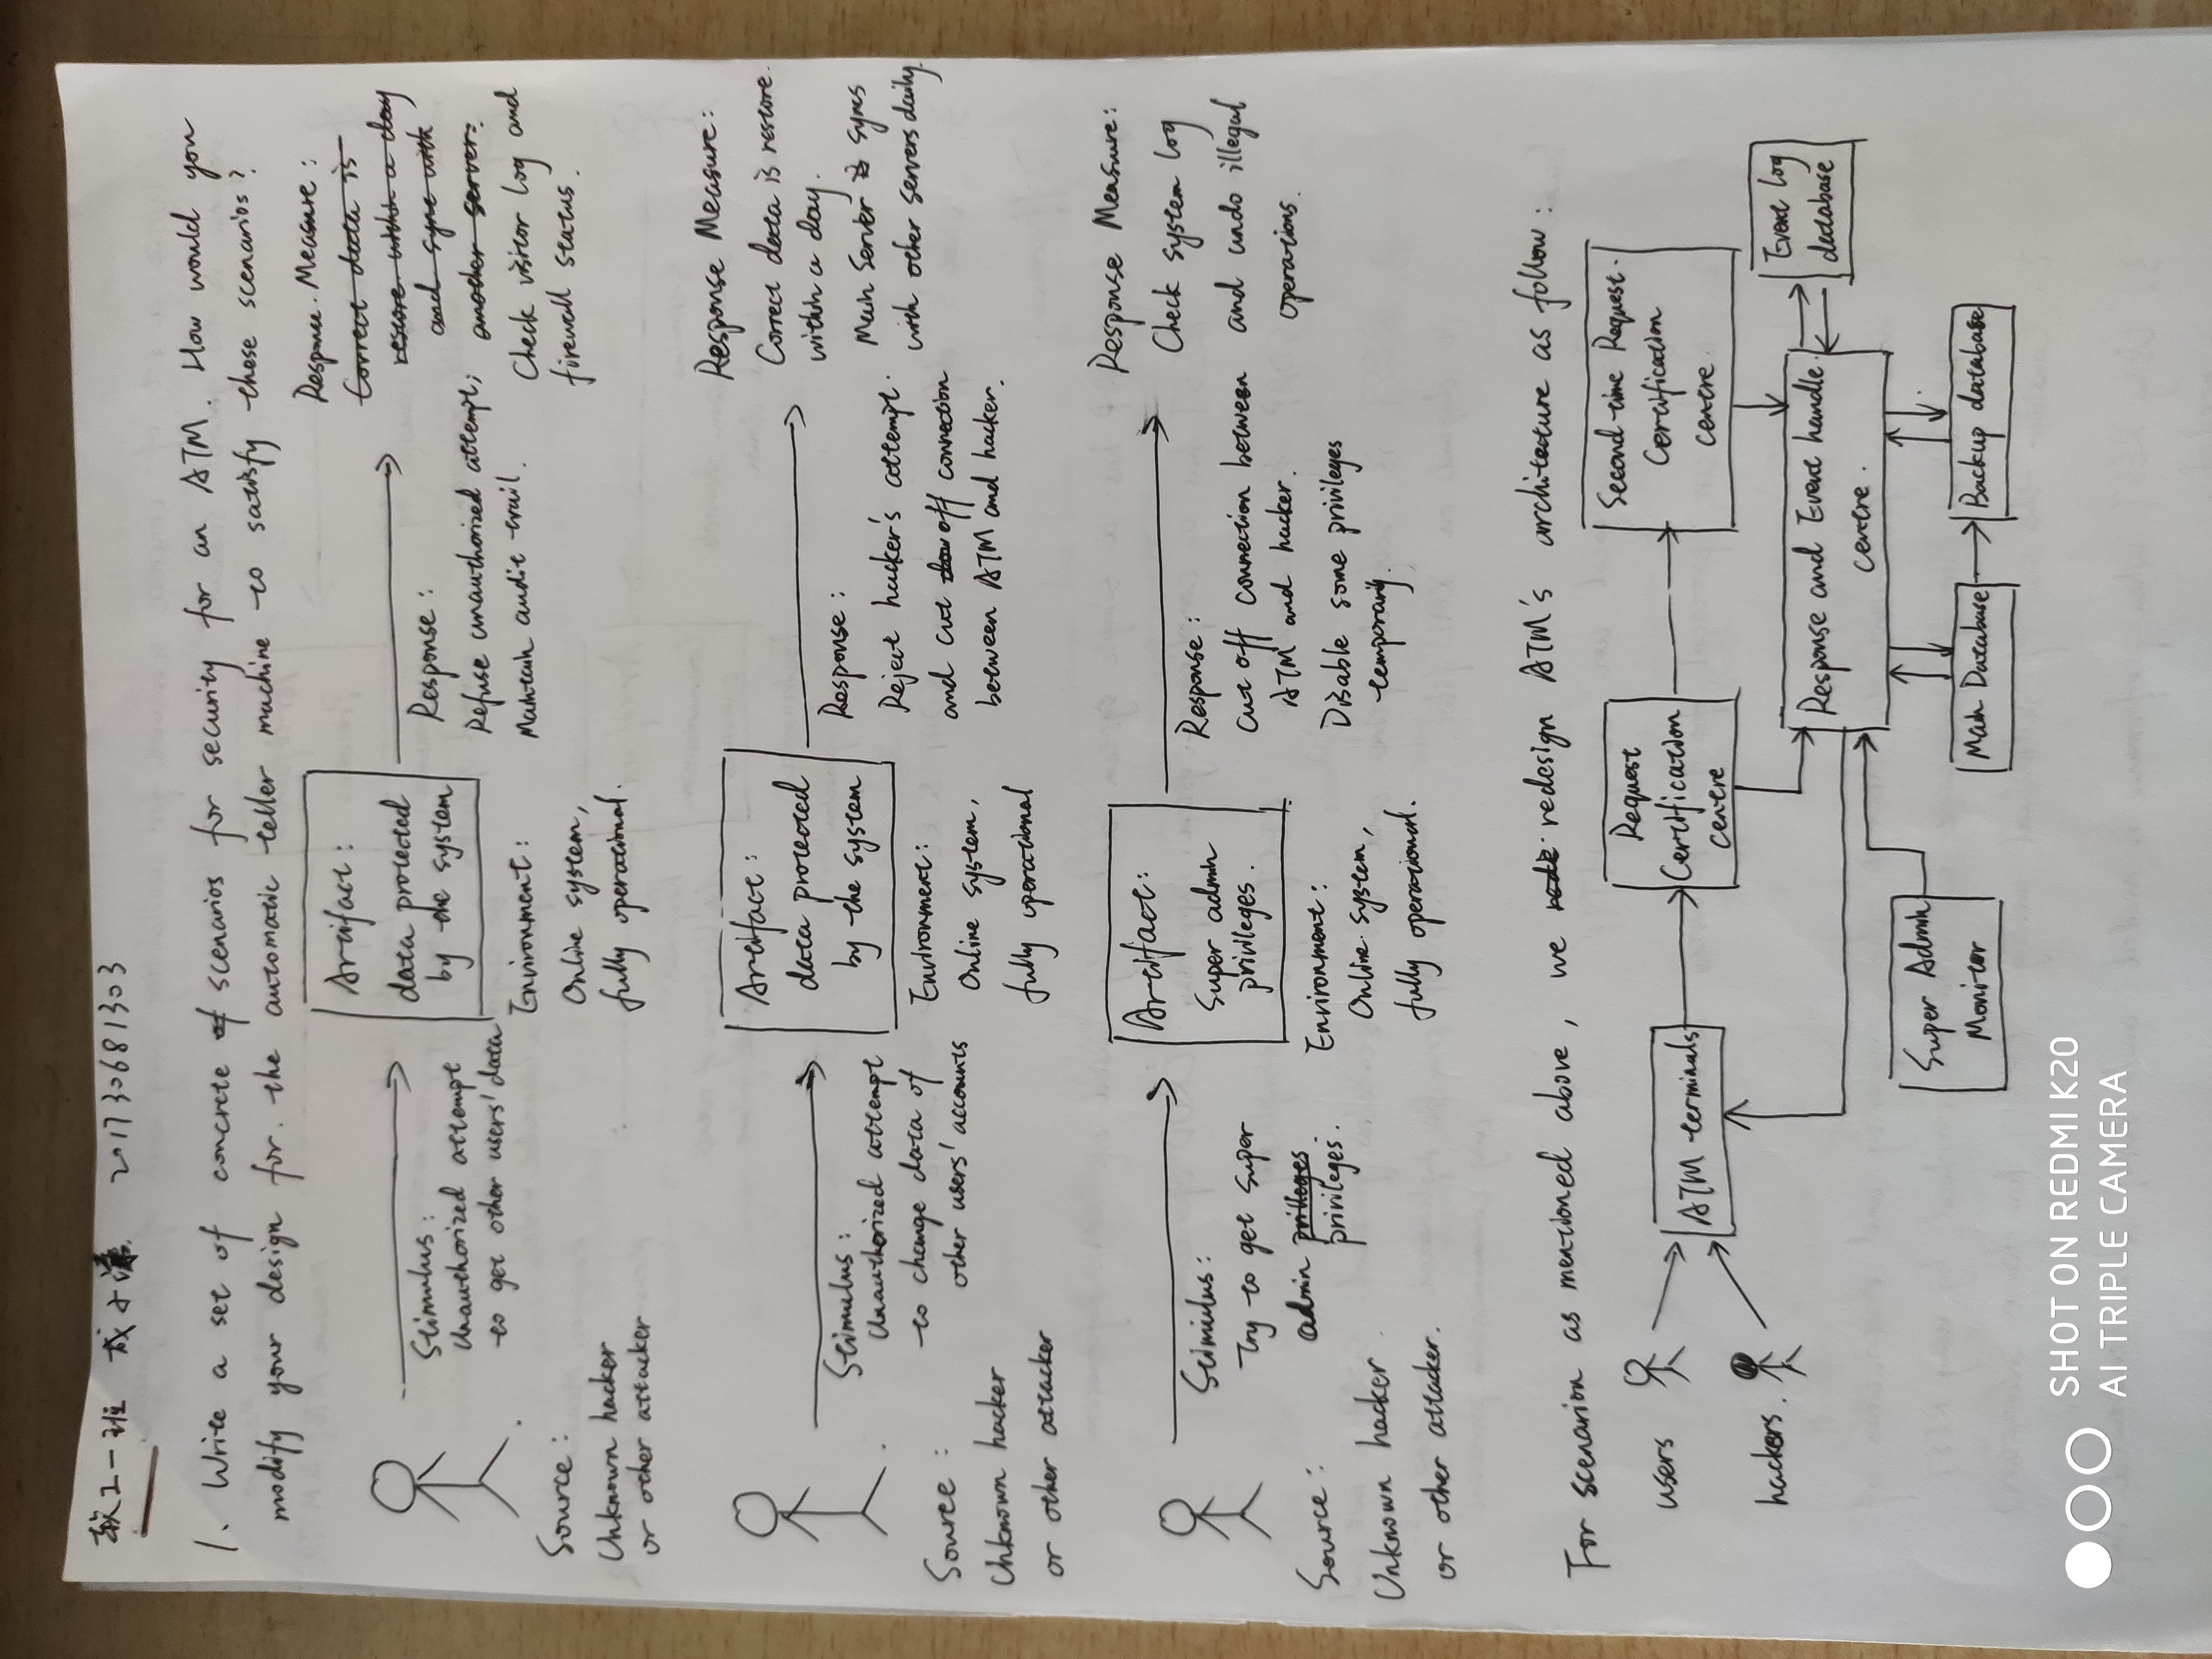 软工一班 成 201730681303
1. Write a set of concrete of scenarios for security for an ATM. How would you
modify your design for. the automatic teller machine to satisfy these scenarios?
Source:
Unknown hacker
or other attacker
Stimulus:
Unauthorized attempt
to get other users' data
Artifact:
data protected
by the system
Environment:
Online system,
fully operational.
Response:
Refuse unauthorized attempt;
Maintain audit trail.
Response Measure:
Correct data is
restore within a day
and sync with
another server.
Check visitor log and
firewall status.
Source:
Unknown hacker
or other attacker
Stimulus:
Unauthorized attempt
to change data of
other users' accounts
Artifact:
data protected
by the system
Environment:
Online system,
fully operational
Response:
Reject hacker's attempt.
and cut dow off connection
between ATM and hacker.
Response Measure:
Correct data is restore.
within a day.
Main Server is syncs
with other servers daily.
Source:
Unknown hacker
or other attacker.
Stimulus:
Try to get super
admin prilleges
privileges.
Artifact:
Super admin
privileges.
Environment:
Online system,
fully operational.
Response:
Cut off connection between
ATM and hacker.
Disable some privileges
temporarily.
Response Measure:
Check system log
and undo illegal
operations.
For scenarion as mentioned above, we rede redesign ATM's architecture as follow:
users
hackers.
ATM terminals
Request
Certification
centre
Second-time Request
Certification
centre
Response and Event handle
centre.
Event log
database
Super Admin
Monitor
Main Database
Backup database
SHOT ON REDMI K20
AI TRIPLE CAMERA